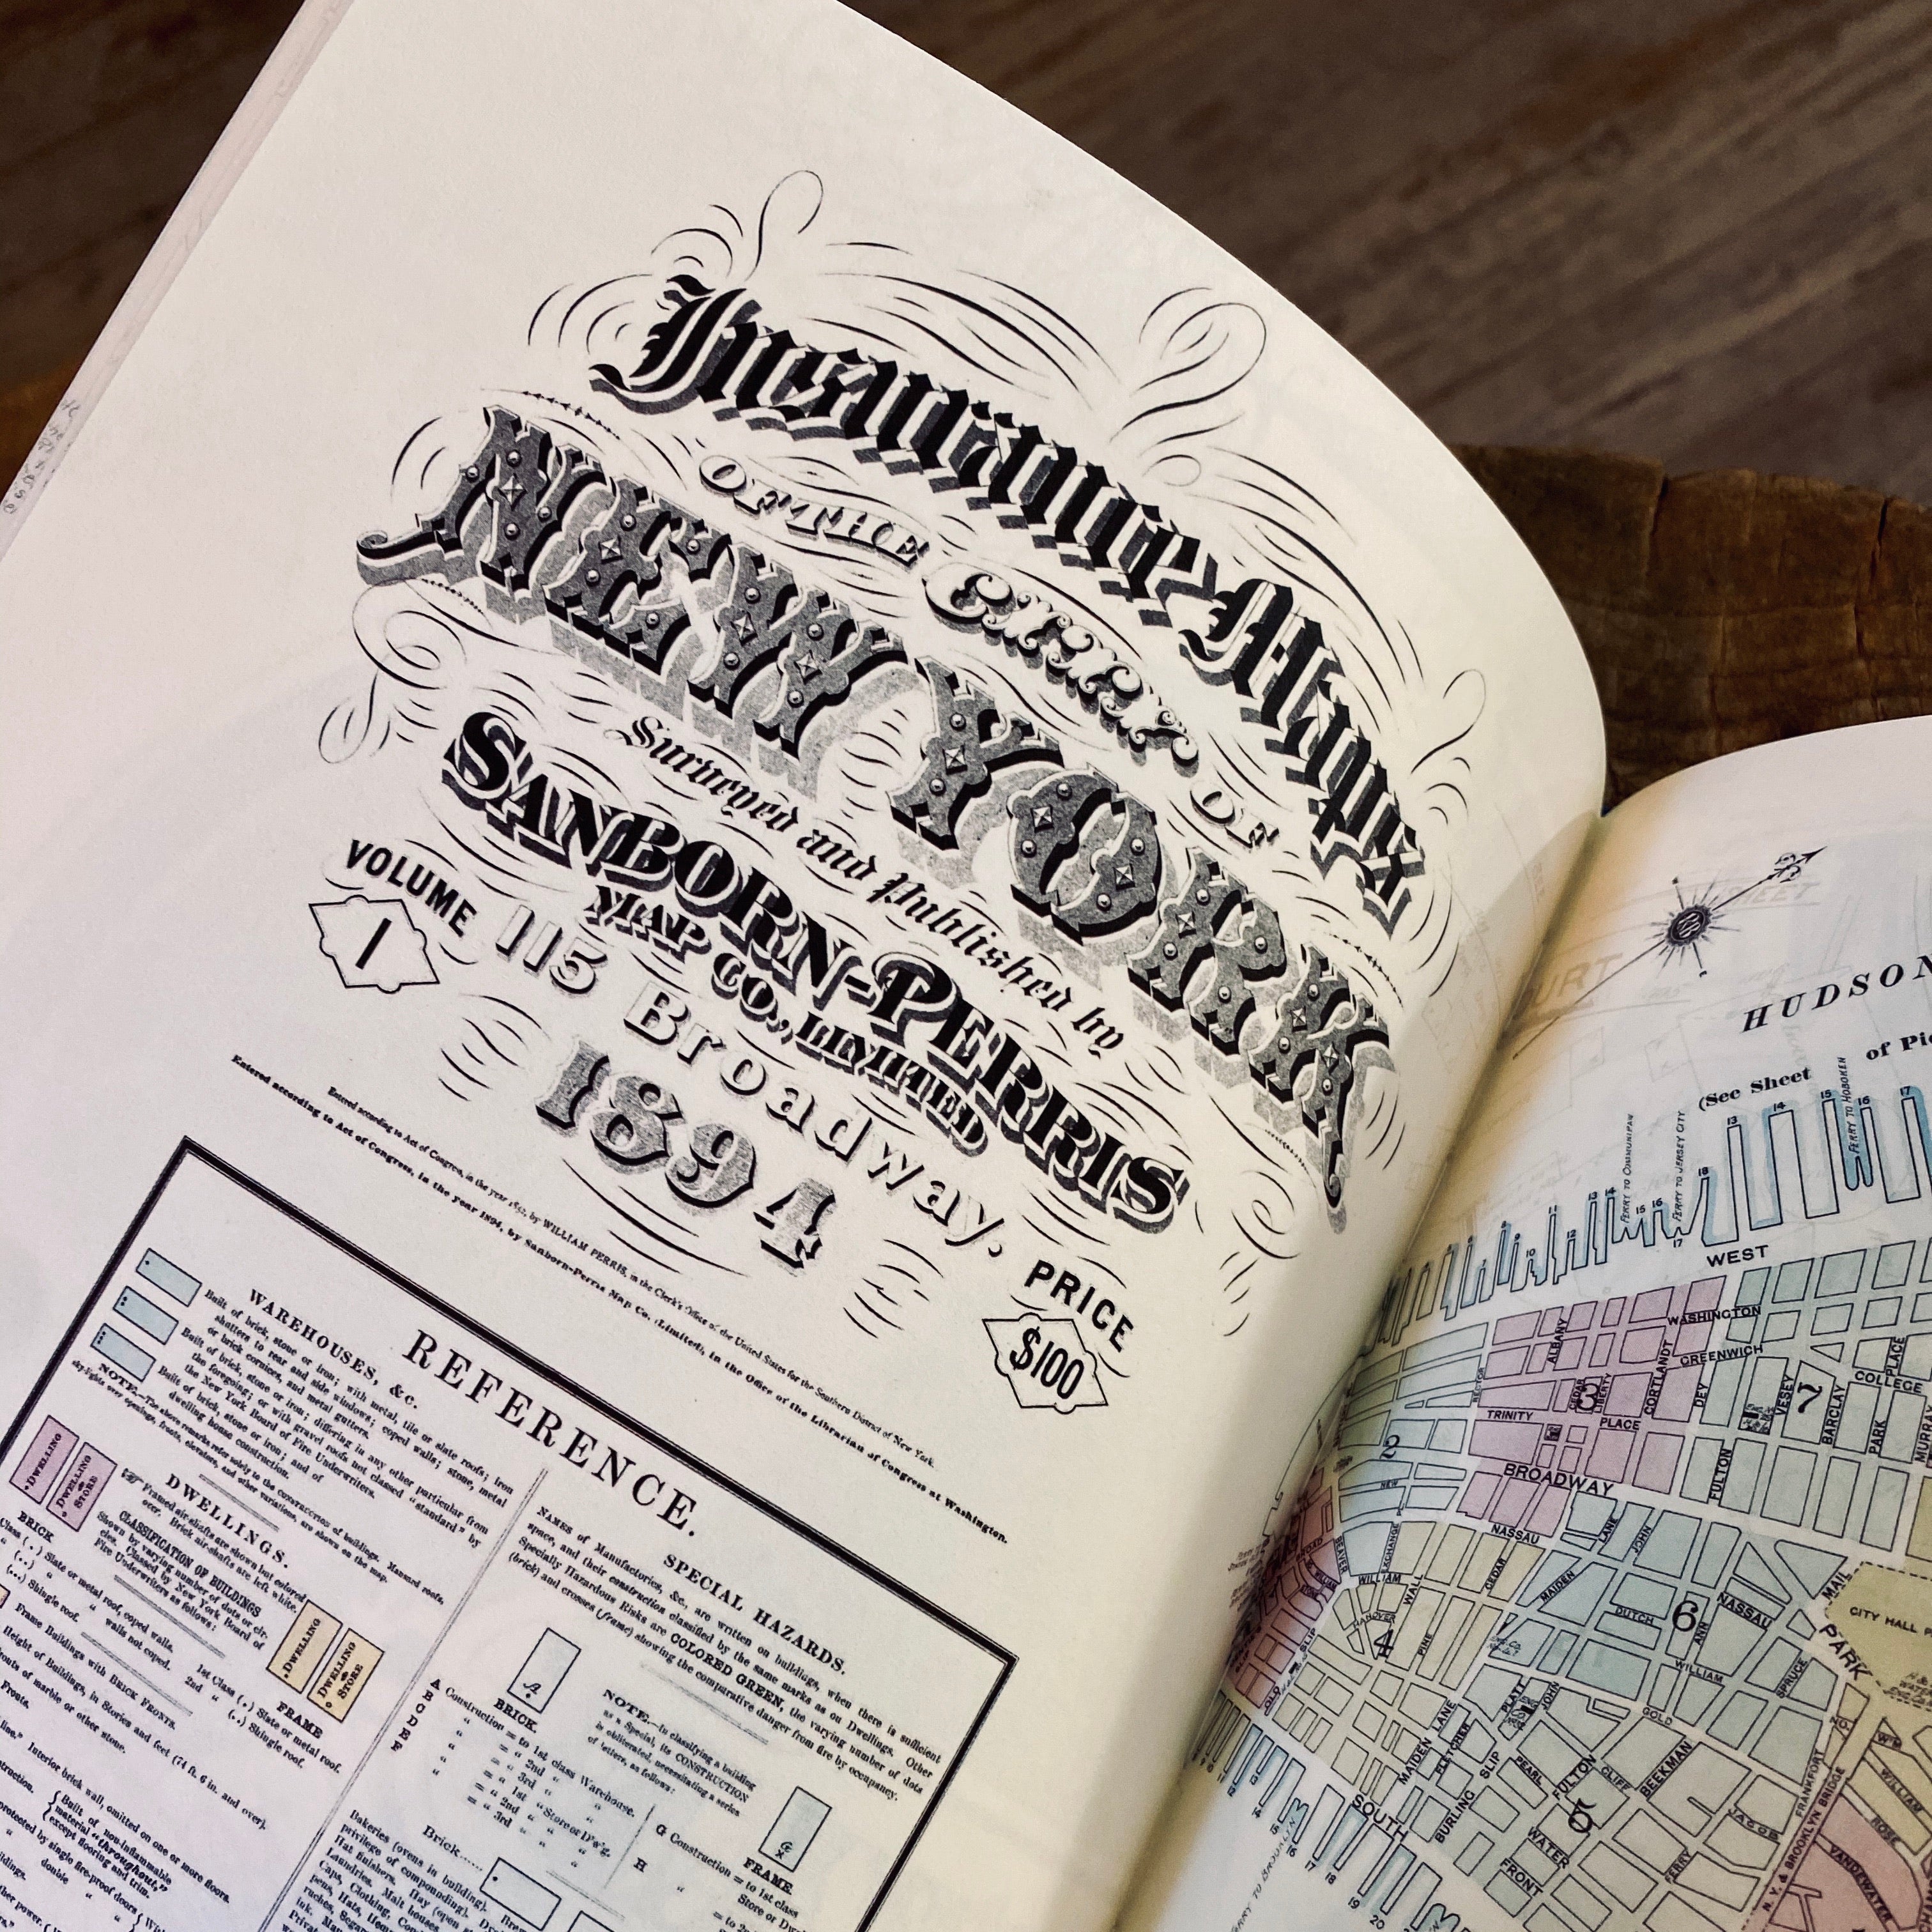 Insurance Maps
OF THE CITY OF
NEW YORK
Surveyed and Published by
SANBORN-PERRIS
MAP CO., LIMITED
115 Broadway.
1894
VOLUME
1
PRICE
$100
Entered according to Act of Congress, in the year 1852, by WILLIAM PERRIS, in the Clerk's Office of the United States for the Southern District of New York.
Entered according to Act of Congress, in the year 1894, by Sanborn-Perris Map Co. (Limited), in the Office of the Librarian of Congress at Washington.
REFERENCE.
WAREHOUSES, &c.
Built of brick, stone or iron; with metal, tile or slate roofs; iron
shutters to rear and side windows; coped walls; stone, metal
or brick cornices, and metal gutters.
Built of brick, stone or iron; differing in any other particular from
the foregoing; or with gravel roofs not classed "standard" by
the New York Board of Fire Underwriters.
Built of brick, stone or iron; and of
dwelling house construction.
NOTE.—The above remarks refer solely to the CONSTRUCTION of buildings. Mansard roofs,
sky-lights over openings, fronts, elevators, and other variations, are shown on the map.
DWELLING
DWELLING & STORE
DWELLINGS.
Framed air-shafts are shown but colored
over. Brick air-shafts are left white.
CLASSIFICATION OF BUILDINGS
Shown by varying number of dots or cir-
cles. Classed by New York Board of
Fire Underwriters as follows:
BRICK
Class (.) Slate or metal roof, coped walls.
" (..) " " walls not coped.
" (...) Shingle roof.
DWELLING
DWELLING & STORE
FRAME
1st Class (.) Slate or metal roof.
2nd " (..) Shingle roof.
Frame Buildings with BRICK FRONTS.
Height of Buildings, in Stories and feet (74 ft. 6 in. and over).
Fronts of marble or other stone.
Fronts.
line." Interior brick wall, omitted on one or more floors.
Built of non-inflammable
material "throughout,"
except flooring and trim.
protected by single fire-proof doors
double "
SPECIAL HAZARDS.
NAMES of Manufactories, &c., are written on buildings, when there is sufficient
space, and their construction classified by the same marks as on Dwellings. Other
Specially Hazardous Risks are COLORED GREEN, the varying number of dots
(brick) and crosses (frame) showing the comparative danger from fire by occupancy.
A
BRICK.
NOTE.—In classifying a building
as a Special, its CONSTRUCTION
is obliterated, necessitating a series
of letters, as follows:
A Construction = to 1st class Warehouse.
B " = " 2nd " "
C " = " 3rd " "
D " = " 1st " Store or D'w'g.
E " = " 2nd " "
F " = " 3rd " "
G Construction = to 1st class
Store or Dw
H
G
FRAME.
Brick
Bakeries (ovens in building).
privilege of compounding).
Hat finishers. Hay (open
Laundries. Malt houses.
HUDSON
of Pie
(See Sheet
FERRY TO COMMUNIPAW
FERRY TO JERSEY CITY
FERRY TO HOBOKEN
13
14
15
16
17
WEST
WASHINGTON
GREENWICH
ALBANY
CEDAR
LIBERTY
CORTLANDT
DEY
VESEY
BARCLAY
PARK
MURRAY
COLLEGE PLACE
TRINITY PLACE
RECTOR
BROADWAY
FULTON
2
3
7
NEW
NASSAU
LANE
JOHN
MAIL
CITY HALL P
PARK
EXCHANGE
WILLIAM
WALL
CEDAR
MAIDEN
DUTCH
6
ANN
NASSAU
WILLIAM
SPRUCE
HANOVER
4
PINE
PLATT
JOHN
GOLD
MAIDEN LANE
FLETCHER
BURLING SLIP
PEARL
FULTON
CLIFF
BEEKMAN
FRANKFORT
N.Y. & BROOKLYN BRIDGE
WM
WILLIAM
ROSE
VANDEWATER
JACOB
FERRY
SOUTH
WATER
FRONT
OLD SLIP
18
19
20